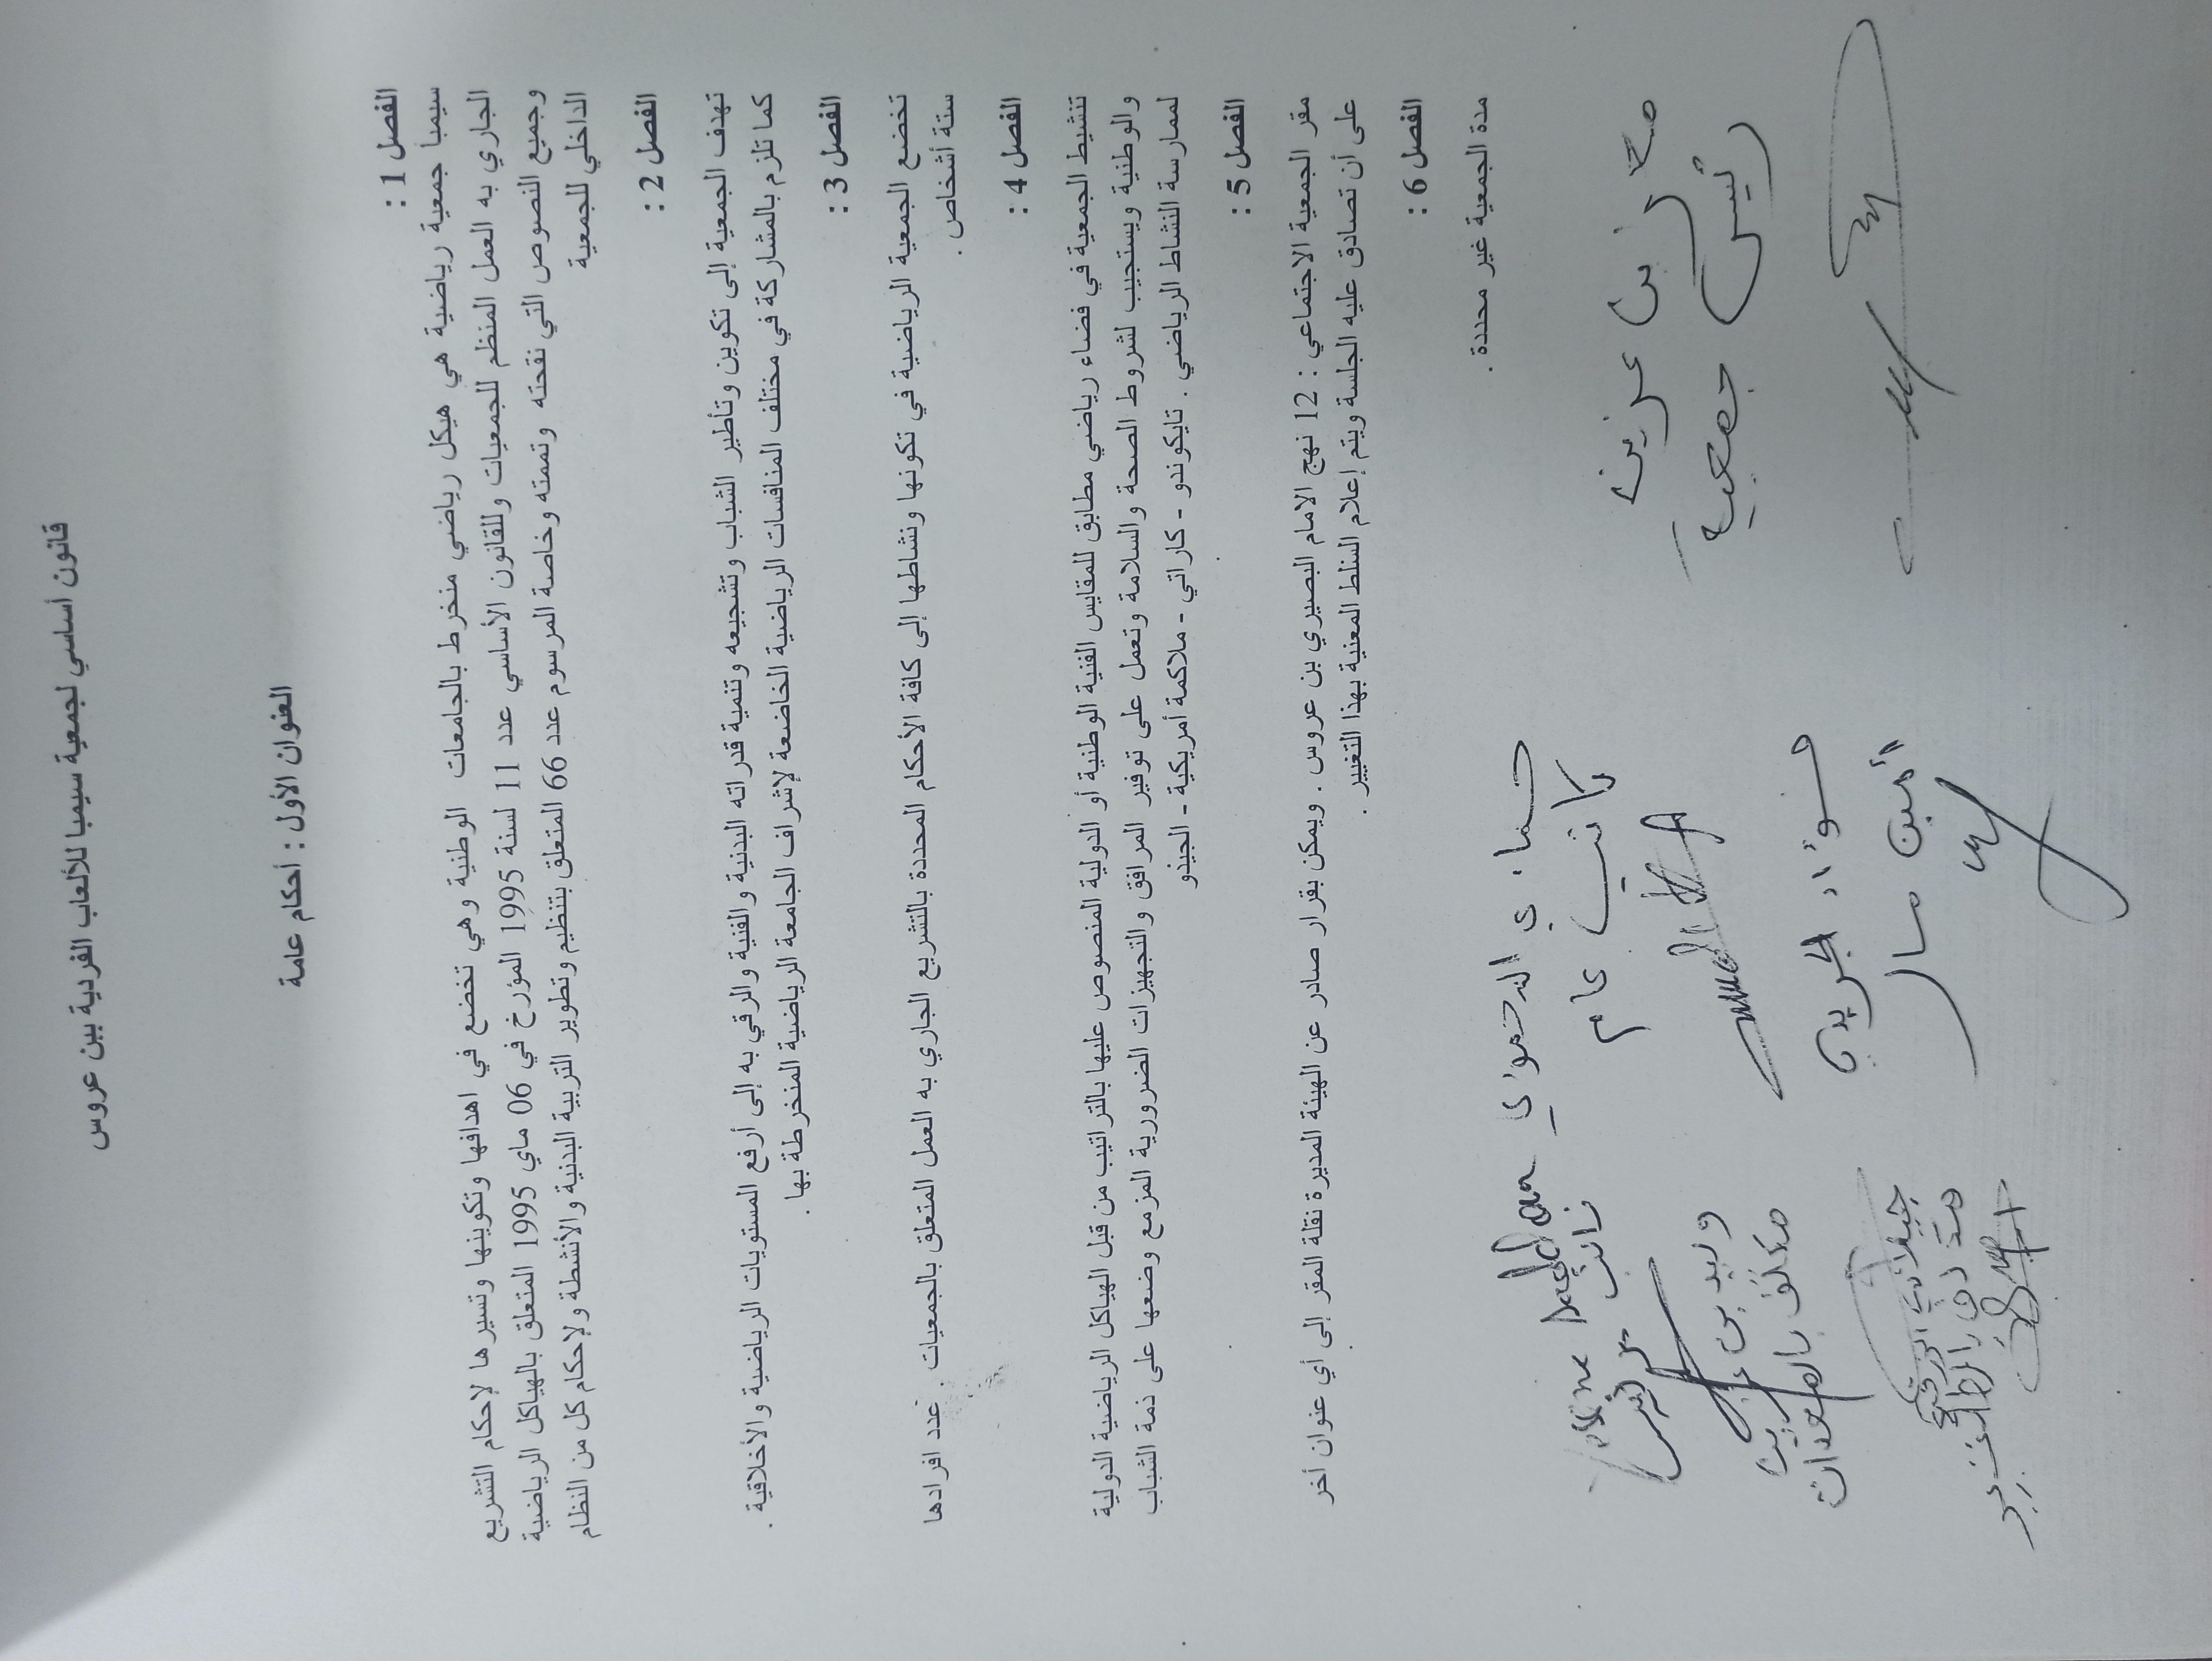 قانون أساسي لجمعية سيمبا للألعاب الفردية بين عروس
العنوان الأول : أحكام عامة
الفصل 1 :
سيمبا جمعية رياضية هي هيكل رياضي منخرط بالجامعات الوطنية وهي تخضع في اهدافها وتكوينها وتسيرها لإحكام التشريع
الجاري به العمل المنظم للجمعيات وللقانون الأساسي عدد 11 لسنة 1995 المؤرخ في 06 ماي 1995 المتعلق بالهياكل الرياضية
وجميع النصوص التي نقحته وتممته وخاصة المرسوم عدد 66 المتعلق بتنظيم وتطوير التربية البدنية والأنشطة ولإحكام كل من النظام
الداخلي للجمعية
الفصل 2 :
تهدف الجمعية إلى تكوين وتأطير الشباب وتشجيعه وتنمية قدراته البدنية والفنية والرقي به إلى أرفع المستويات الرياضية والأخلاقية .
كما تلزم بالمشاركة في مختلف المنافسات الرياضية الخاضعة لإشراف الجامعة الرياضية المنخرطة بها .
الفصل 3 :
تخضع الجمعية الرياضية في تكونها ونشاطها إلى كافة الأحكام المحددة بالتشريع الجاري به العمل المتعلق بالجمعيات . عدد افرادها
ستة أشخاص .
الفصل 4 :
تنشيط الجمعية في فضاء رياضي مطابق للمقايس الفنية الوطنية أو الدولية المنصوص عليها بالتراتيب من قبل الهياكل الرياضية الدولية
والوطنية ويستجيب لشروط الصحة والسلامة وتعمل على توفير المرافق والتجهيزات الضرورية المزمع وضعها على ذمة الشباب
لممارسة النشاط الرياضي . تايكوندو - كاراتي - ملاكمة أمريكية - الجيذو
الفصل 5 :
مقر الجمعية الاجتماعي : 12 نهج الامام البصيري بن عروس . ويمكن بقرار صادر عن الهيئة المديرة نقلة المقر إلى أي عنوان أخر
على أن تصادق عليه الجلسة ويتم إعلام السلط المعنية بهذا التغيير .
الفصل 6 :
مدة الجمعية غير محددة .
بن عزيز
رئيس جمعية
كاتب عام
أمين مال
وليد بن
مكلف بالمعدات